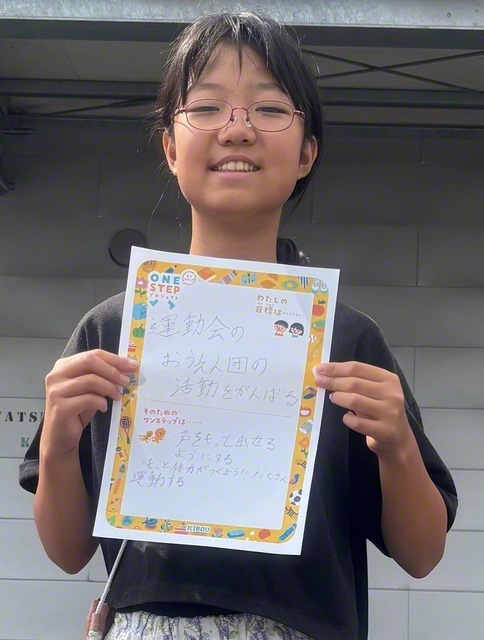 ONE
STEP
プロジェクト
わたしの
目標は……
運動会の
おうえん団の
活動をがんばる
そのための
ワンステップは……
声をもっと出せる
ようにする
もっと体力がつくようにたくさん
運動する
KIBOU
ATSU